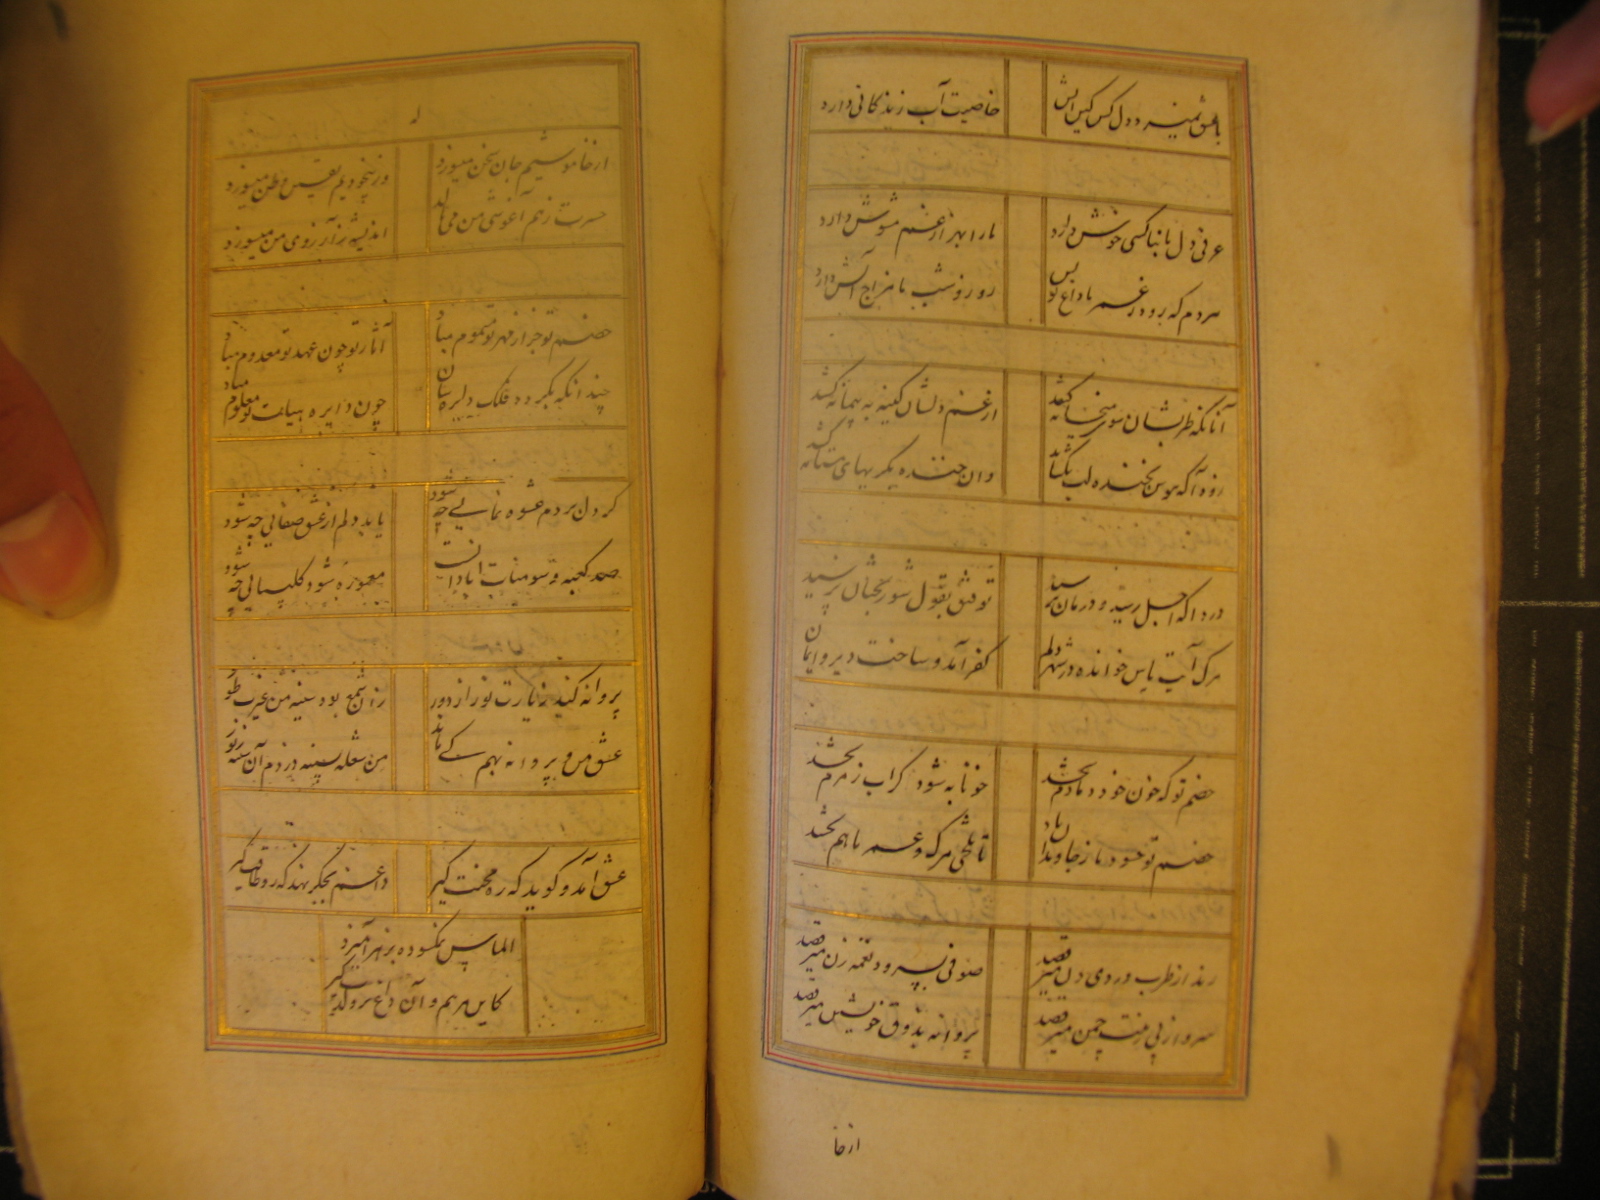 با عشق ستیزه در دل کس کین آتش
خاصیت آب زندگانی دارد
عرفی دل ما بناکسی خوش دارد
ما را بهزار غم مشوش دارد
مردم که برو در غم با داغ تو بس
روز و شب ما مزاج آتش دارد
آنانکه طربشان سوی میخانه کشد
از غم دلشان کینه به پیمانه کشد
زود آکه هوس بخنده لب بکشاند
وان خنده بگریهای مستانه کشد
دردا که اجل رسید و درمان نرسید
توفیق بقول شور بختان نرسید
مرگ آیت یاس خوانده در شهر دلم
کفر آمد و ساخت دیر و ایمان
خصم تو که خون خود دمادم بخشد
خونابه شود گر آب زمزم بخشد
خصم تو حسود باز جاویدان باد
تا تلخی مرگ و غم باهم بخشد
رند از طرب دردی دن میرقصد
صوفی بسرود نغمه زن میرقصد
سرو از پی زینت چمن میرقصد
پروانه بذوق خویشتن میرقصد
از خا
له
از خاموشیم جان سخن میسوزد
وز بیخودیم نفس بطن میسوزد
حسرت زهم آغوشی من می نالد
اندیشه ز آرزوی من میسوزد
خصم تو جز از قهر تو مسموم مباد
آثار تو چون عهد تو معدوم مباد
چندانکه بگردد فلک دایره سان
چون دایره نهایت تو معلوم مباد
گر دل بردم عشوه نمایی چه شود
یابد دلم از عشق صفایی چه شود
صد کعبه و سومنات آبادانست
معموره شود کلیسایی چه شود
پروانه کند زیارت نور از دور
زان شمع بود سینه من غیرت طور
عشق من و پروانه بهم کی ماند
من شعله بسینه دزدم آن سینه بنور
عشق آمد و گوید که ره محنت گیر
داغم بجگر نهد که رو طاقت گیر
الماس نکسوده بزهر آمیزد
کاین مرهم و آن داغ برو لذت گیر